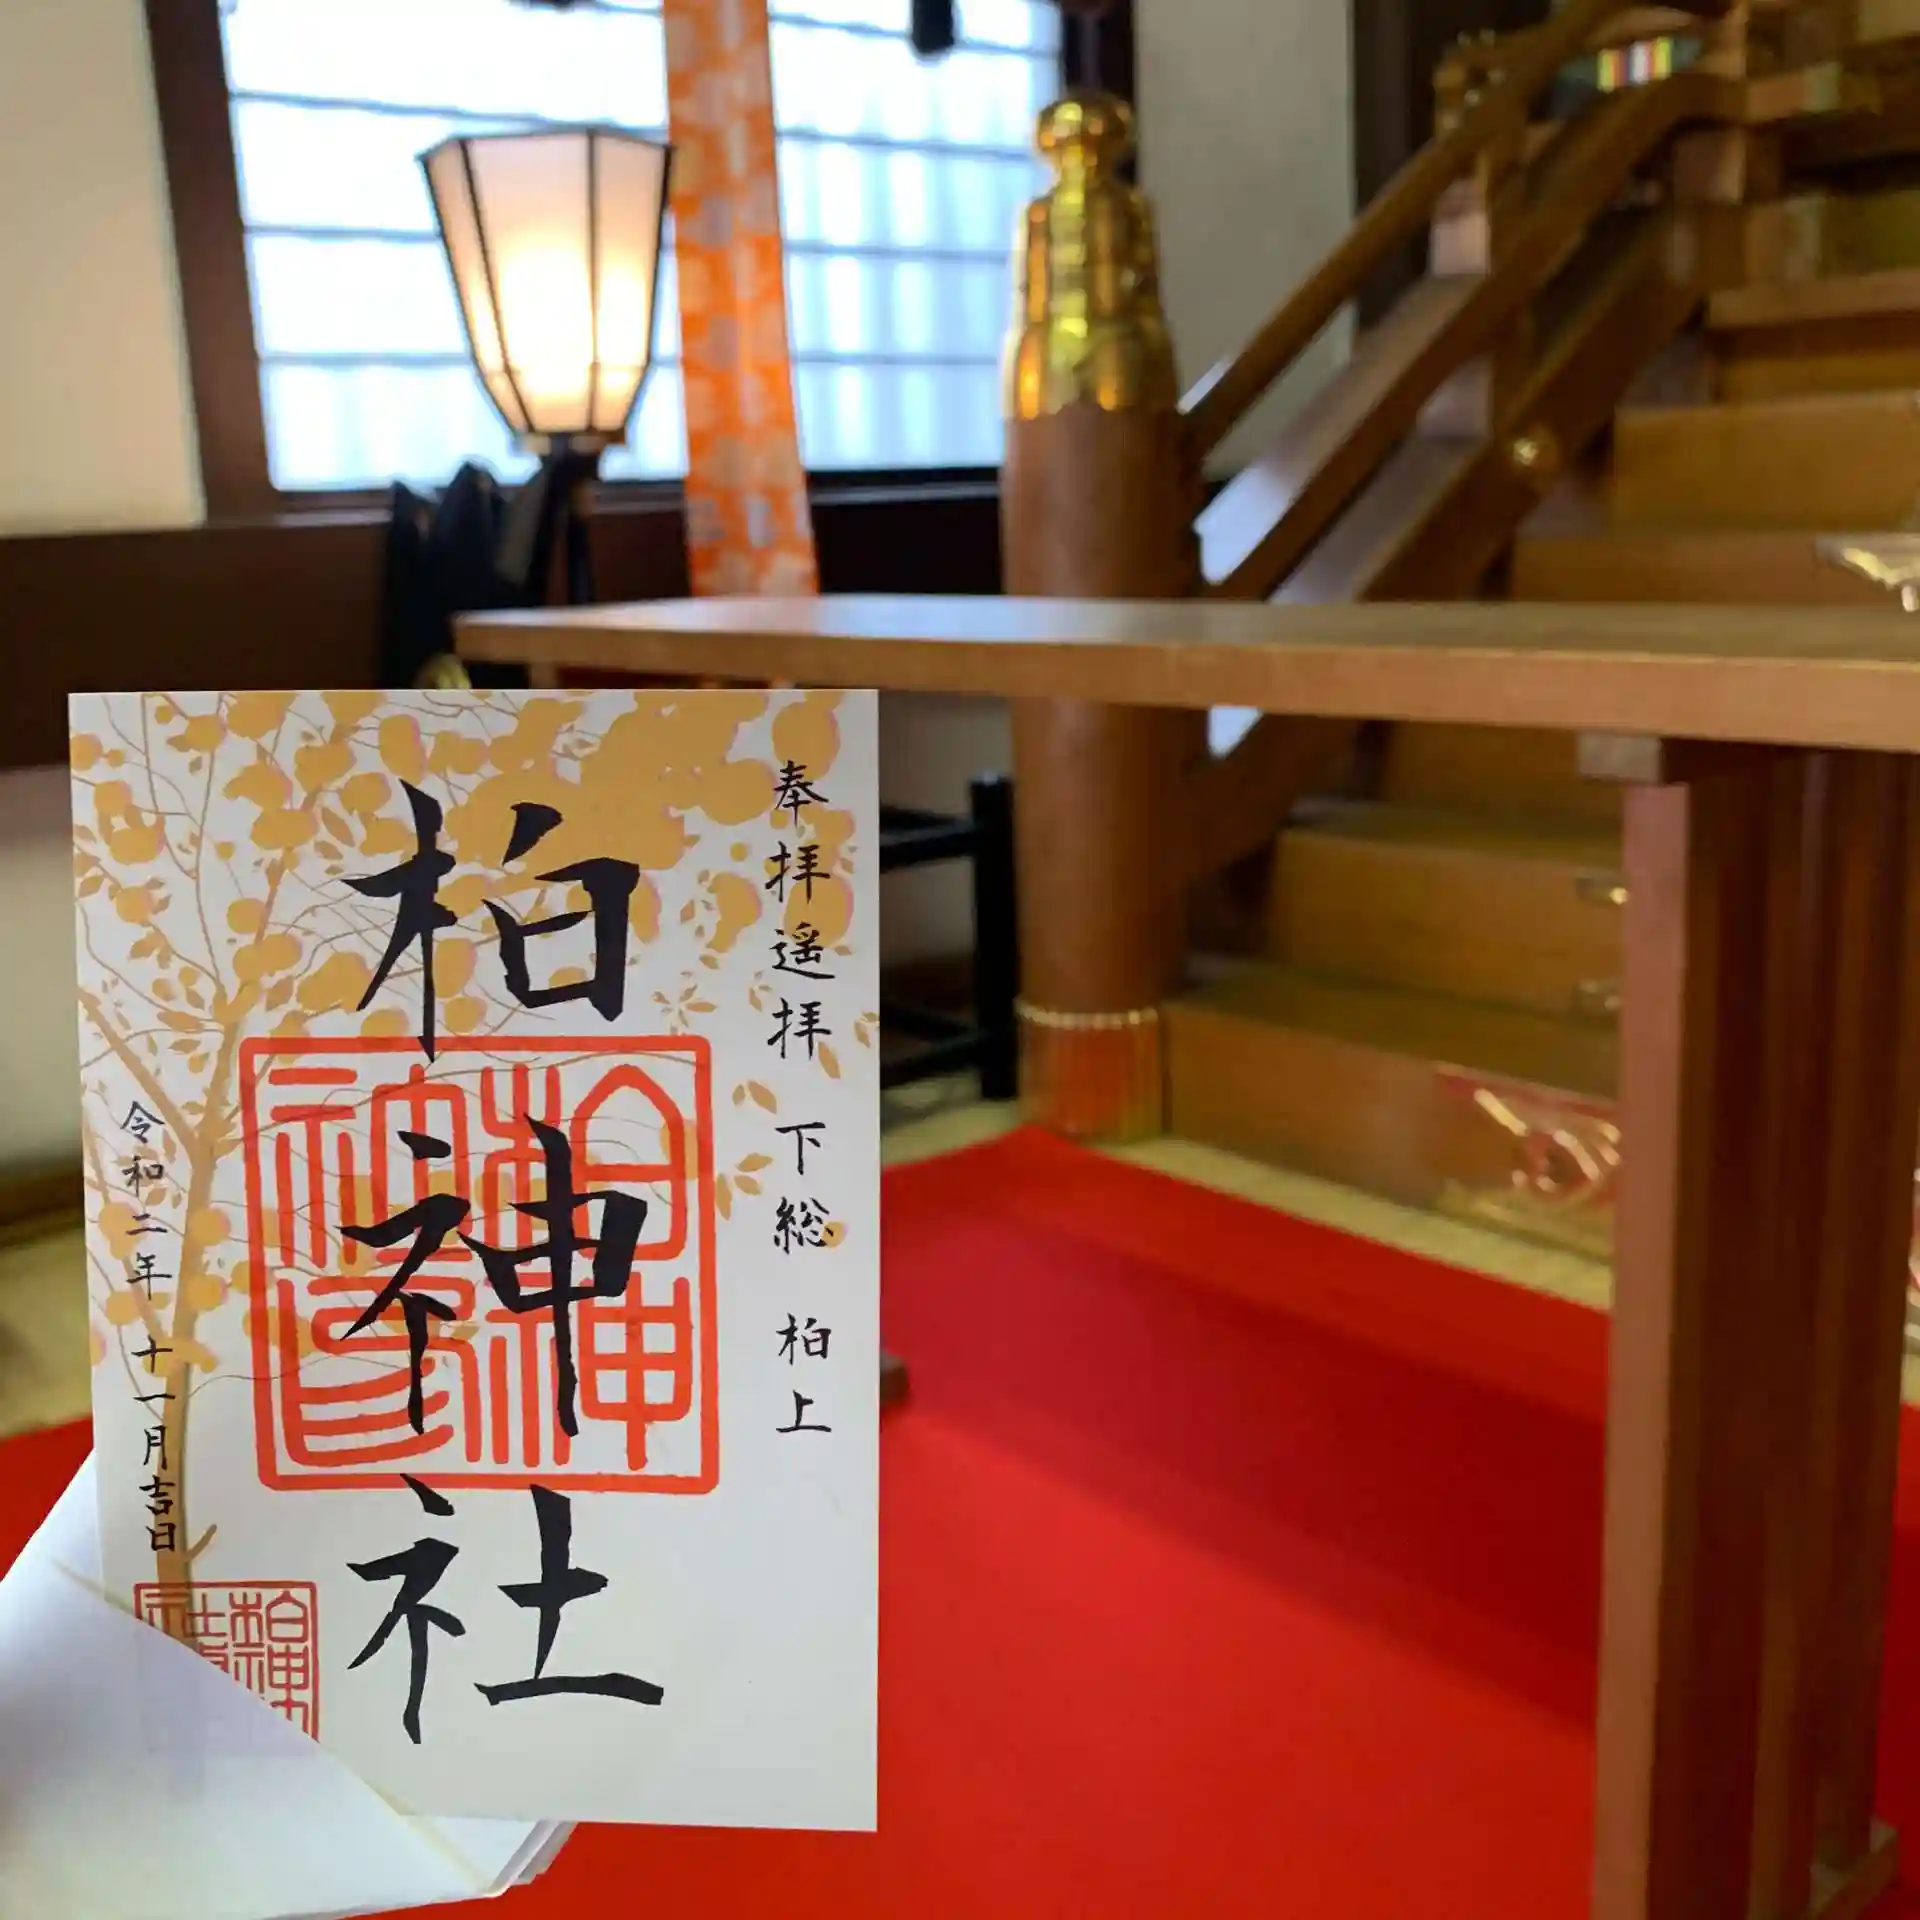 奉拝遥拝 下総 柏上
柏神社
柏神社印
令和二年十一月吉日